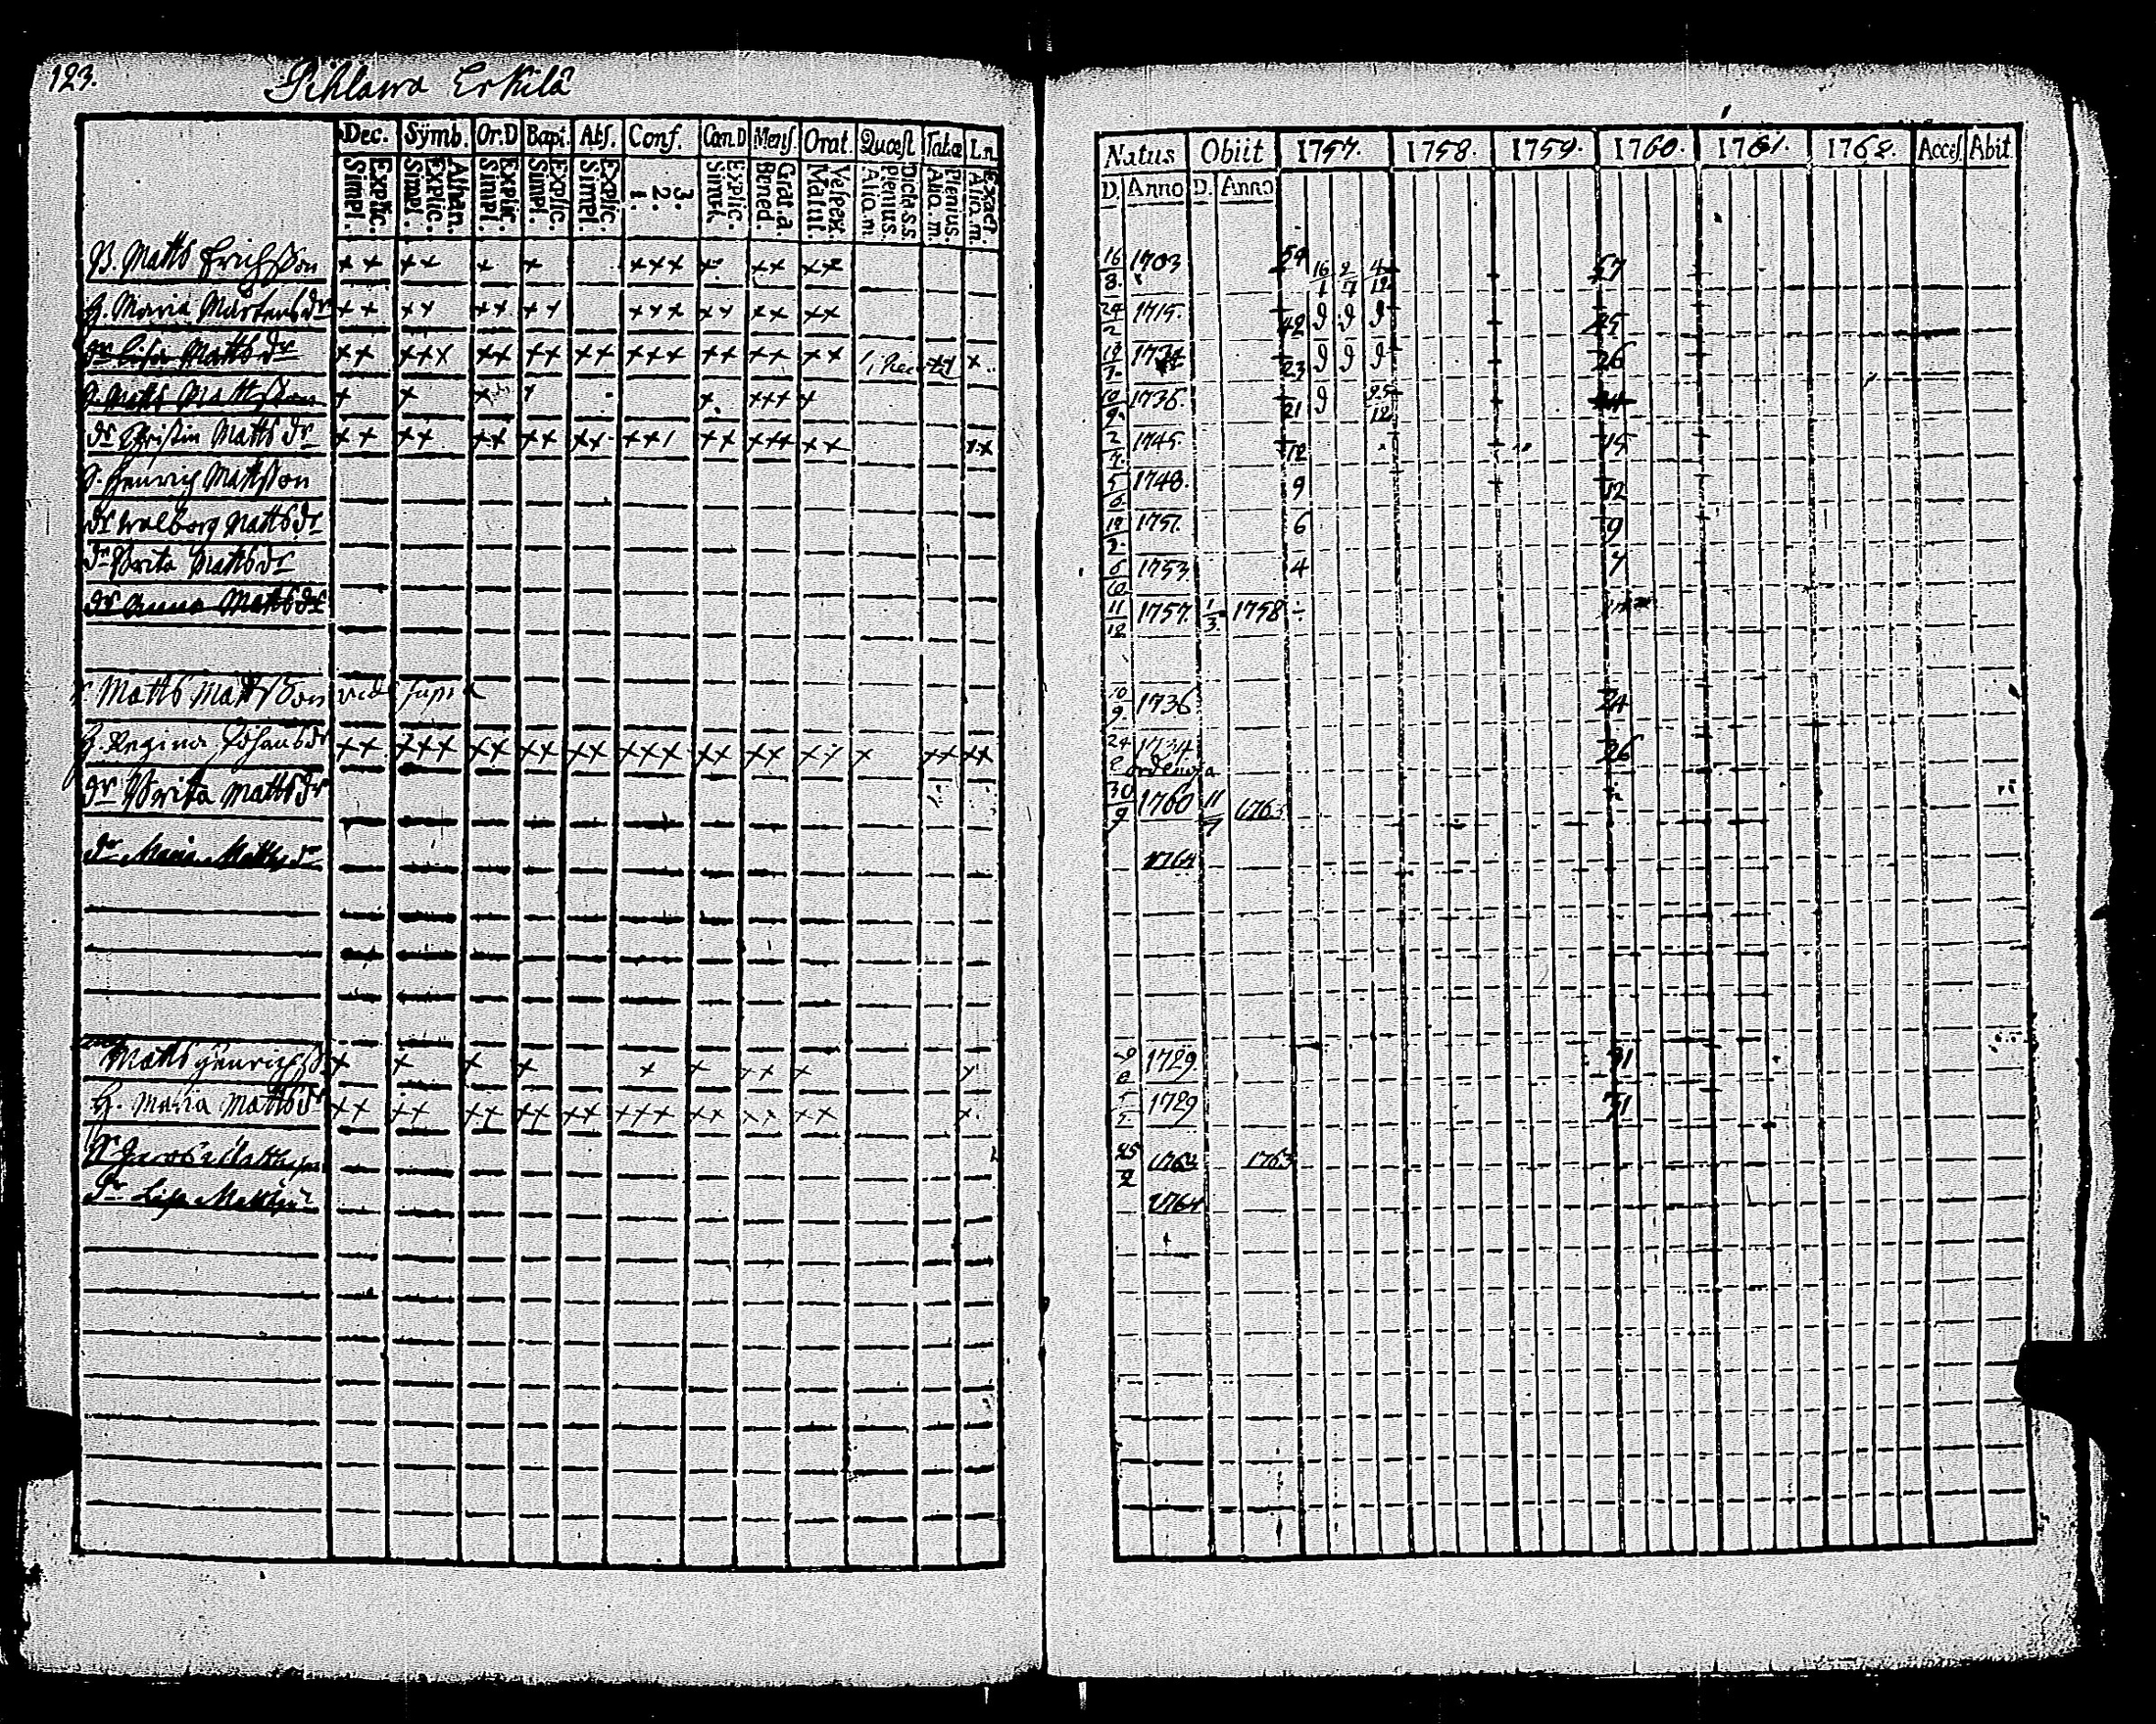 123. Sihlawa Erkilä
Dec. Symb. Or.D Bapt. Abs. Conf. Can.D Mens. Orat. Quæst Tabæ
Explic. Simpl. Athan. Explic. Simpl. Explic. Simpl. Explic. Simpl. Explic. Simpl. 3. 2. 1. Explic. Simpl. Grat.a. Bened. Vesper. Matut. Dicta.s.s. Plenius. Aliq.m. Plenius. Aliq.m.
Natus Obiit 1757. 1758. 1759. 1760. 1761. 1762. Access Abit
D. Anno D. Anno
B. Matts Erichsson × × ×× × × ××× × ×× ×× 16/8 1703 54 16/1 2/7 4/12 57
H. Maria Mårtensdr ×× ×× ×× ×× ××× ×× ×× ×× 24/2 1715. 42 9 9 9 45
dr Lisa Mattsdr ×× ××× ×× ×× ×× ××× ×× ×× ×× ×× × 23 9 9 9 26
Matts Mattsson × × × × × ××× × 10/9 1736. 21 9 24
dr Christin Mattsdr ×× ×× ×× ×× ×× ×× ×× ××× ×× ×× 1745. 12 15
Henrich Mattsson 5/6 1748. 9 12
dr Walborg Mattsdr 1751. 6 9
dr Brita Mattsdr 1753 4 7
dr Anna Mattsdr 11/12 1757. 1/3 1758 ÷
Matts Mattsson vide supra 10/9 1736 24
H. Regina Johansdr ×× ××× ×× ×× ×× ××× ×× ×× ×× × ×× ×× 24 1734 26
dr Brita Mattsdr 30/9 1760 11 1763
dr Maria Mattsdr 1764
Matts Henrichs × × × × × × ×× × × 1729. 31
H. Maria Mattsdr ×× ×× ×× ×× ×× ××× ×× ×× ×× × 1729 31
1762 1763
dr Lisa Mattsdr 1764